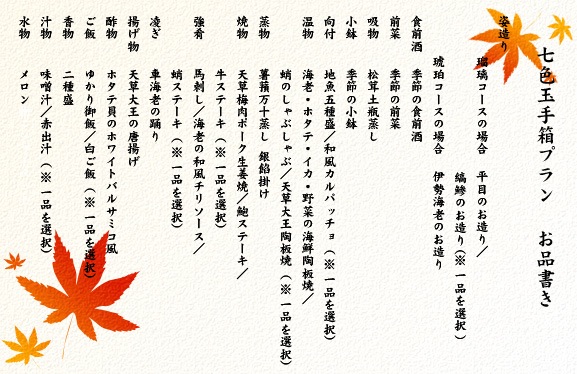 七色玉手箱プラン　お品書き
姿造り　瑠璃コースの場合　平目のお造り／
縞鯵のお造り（※一品を選択）
琥珀コースの場合　伊勢海老のお造り
食前酒　季節の食前酒
前菜　季節の前菜
吸物　松茸土瓶蒸し
小鉢　季節の小鉢
向付　地魚五種盛／和風カルパッチョ（※一品を選択）
温物　海老・ホタテ・イカ・野菜の海鮮陶板焼／
蛸のしゃぶしゃぶ／天草大王陶板焼（※一品を選択）
蒸物　薯蕷万十蒸し 銀餡掛け
焼物　天草梅肉ポーク生姜焼／鮑ステーキ／
牛ステーキ（※一品を選択）
強肴　馬刺し／海老の和風チリソース／
蛸ステーキ（※一品を選択）
凌ぎ　車海老の踊り
揚げ物　天草大王の唐揚げ
酢物　ホタテ貝のホワイトバルサミコ風
ご飯　ゆかり御飯／白ご飯（※一品を選択）
香物　二種盛
汁物　味噌汁／赤出汁（※一品を選択）
水物　メロン